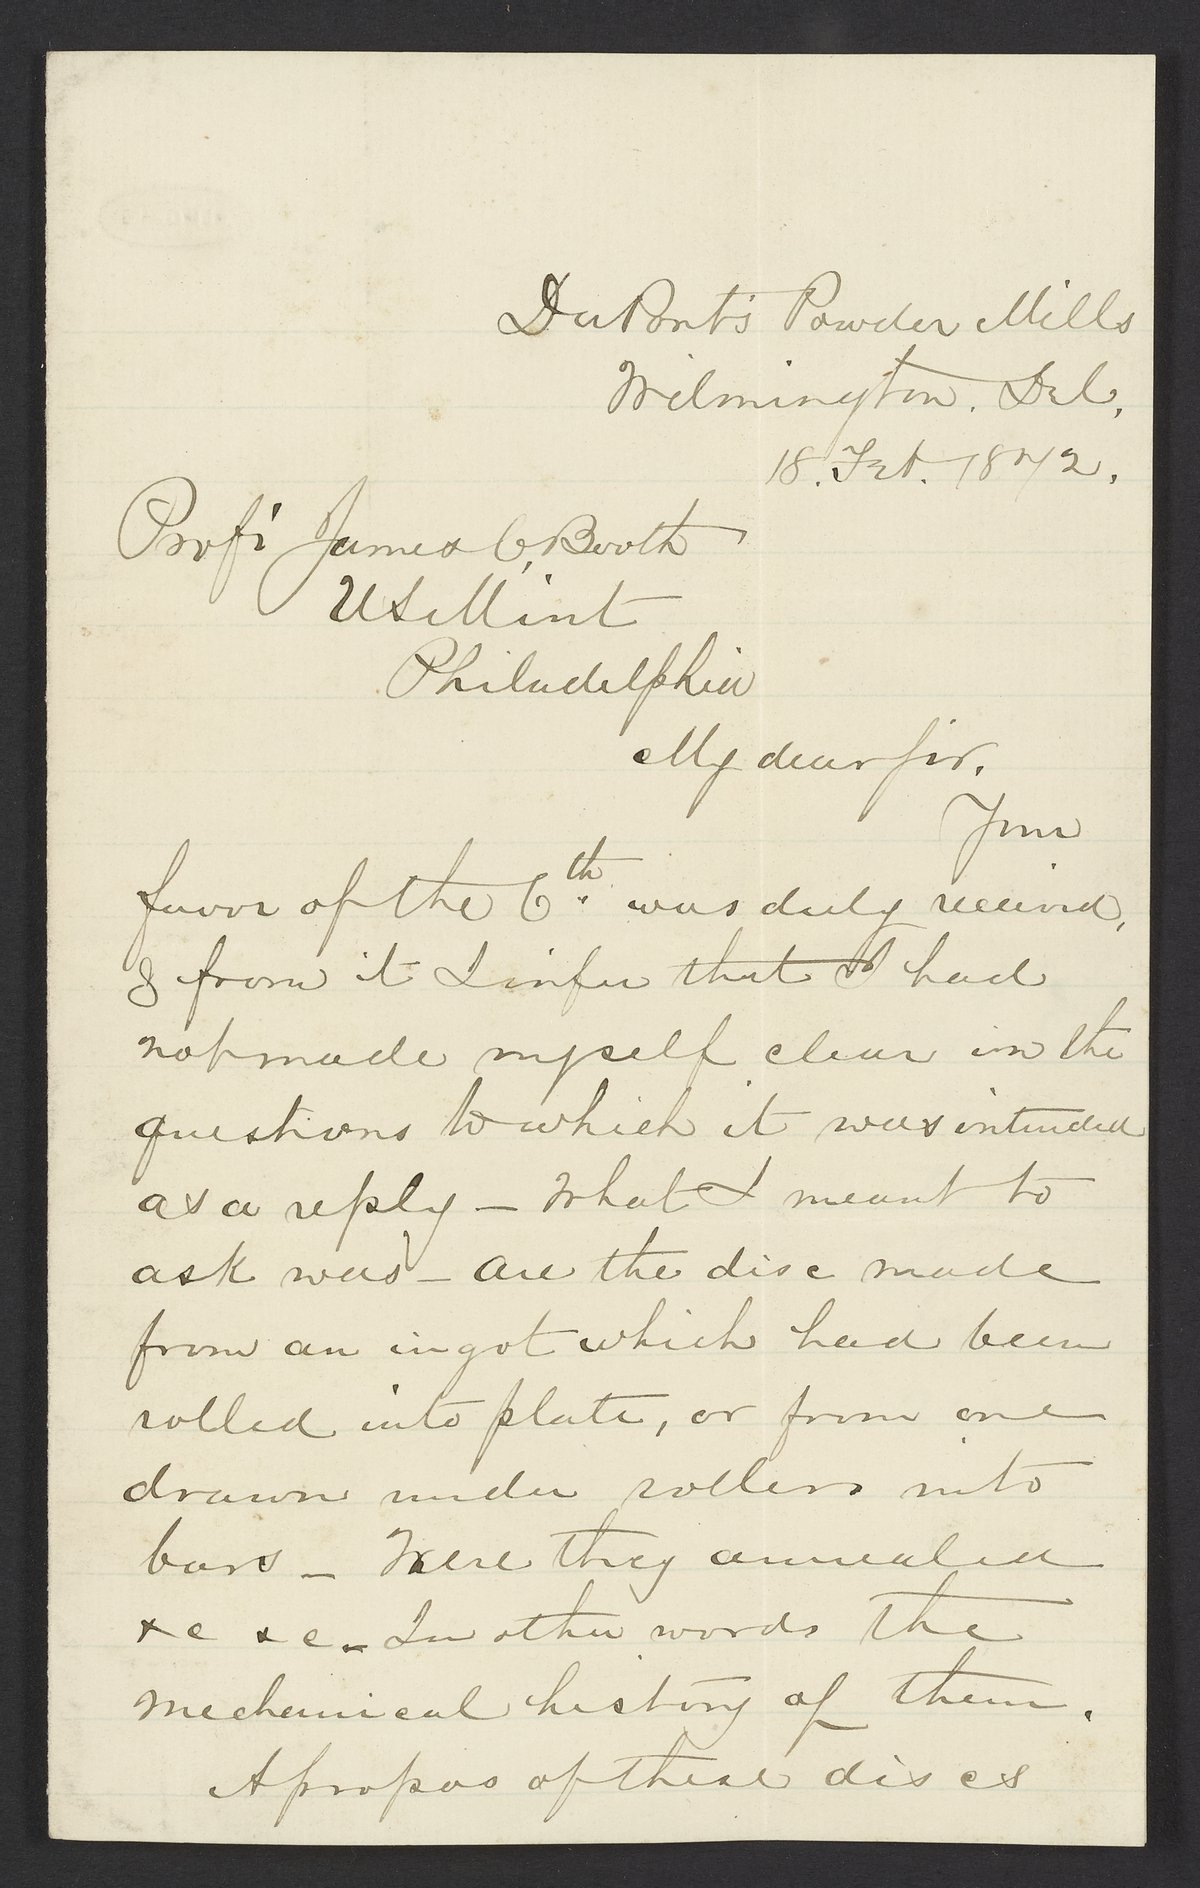 DuPont's Powder Mills
Wilmington. Del.
18. Feb. 1872.
Prof'r James C. Booth
US Mint
Philadelphia
My dear sir.
Your
favor of the 6th. was duly received,
& from it I infer that I had
not made myself clear in the
questions to which it was intended
as a reply — What I meant to
ask was — are the disc made
from an ingot which had been
rolled into plate, or from one
drawn under rollers into
bars — Were they annealed
&c &c — In other words the
mechanical history of them.
Apropos of these discs